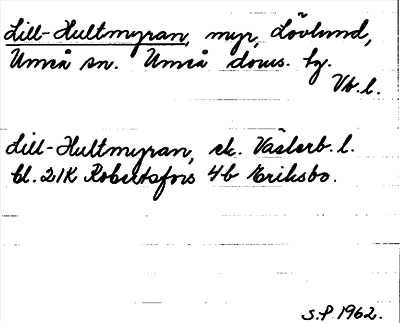 Lill-Hultmyran, myr, Lövlund,
Umeå sn. Umeå doms. hg.
Vb.l.
Lill-Hultmyran, ek. Västerb. l.
bl. 21K Robertsfors 4b Eriksbo.
S.P. 1962.